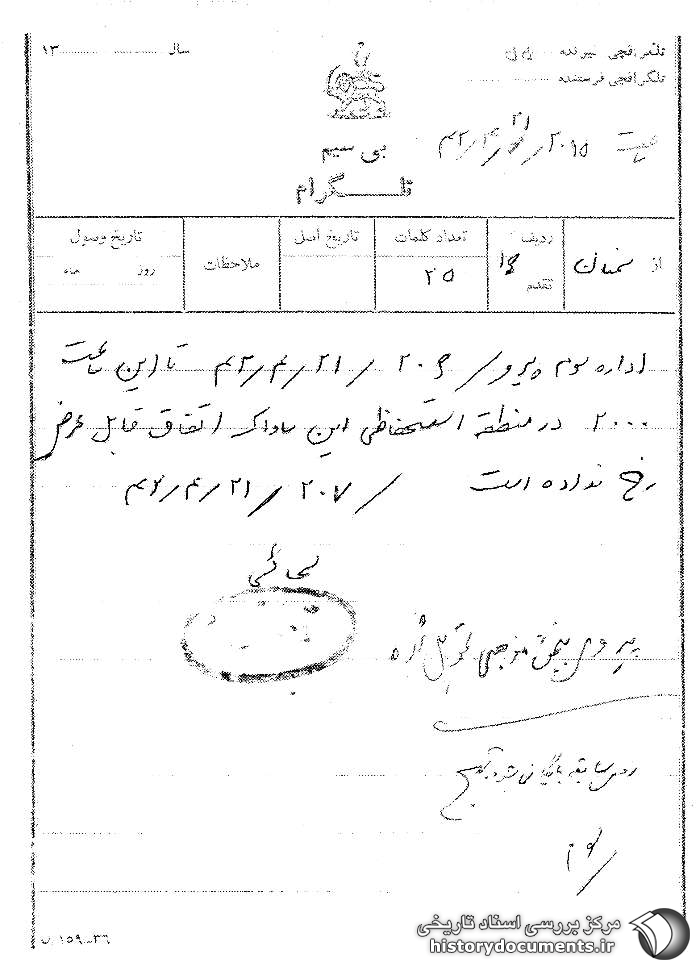 تلگرافچی گیرنده
تلگرافچی فرستنده
سال ۱۳
ساعت ۲۰۱۵ / ۲۱ / ۴ / ۴۲
بی سیم
تلگرام
از سمنان
ردیف تقدم
تعداد کلمات ۲۵
تاریخ اصل
ملاحظات
تاریخ وصول
روز ماه
اداره سوم پیرو / ۲۰۶ / ۲۱ / ۴ / ۴۲ تا این ساعت
۲۰۰۰ در منطقه استحفاظی این ساواک اتفاق قابل عرض
رخ نداده است / ۲۰۷ / ۲۱ / ۴ / ۴۲
پیروی بخش
سابقه بایگانی شود
۱۵۹-۳۶
مرکز بررسی اسناد تاریخی
historydocuments.ir